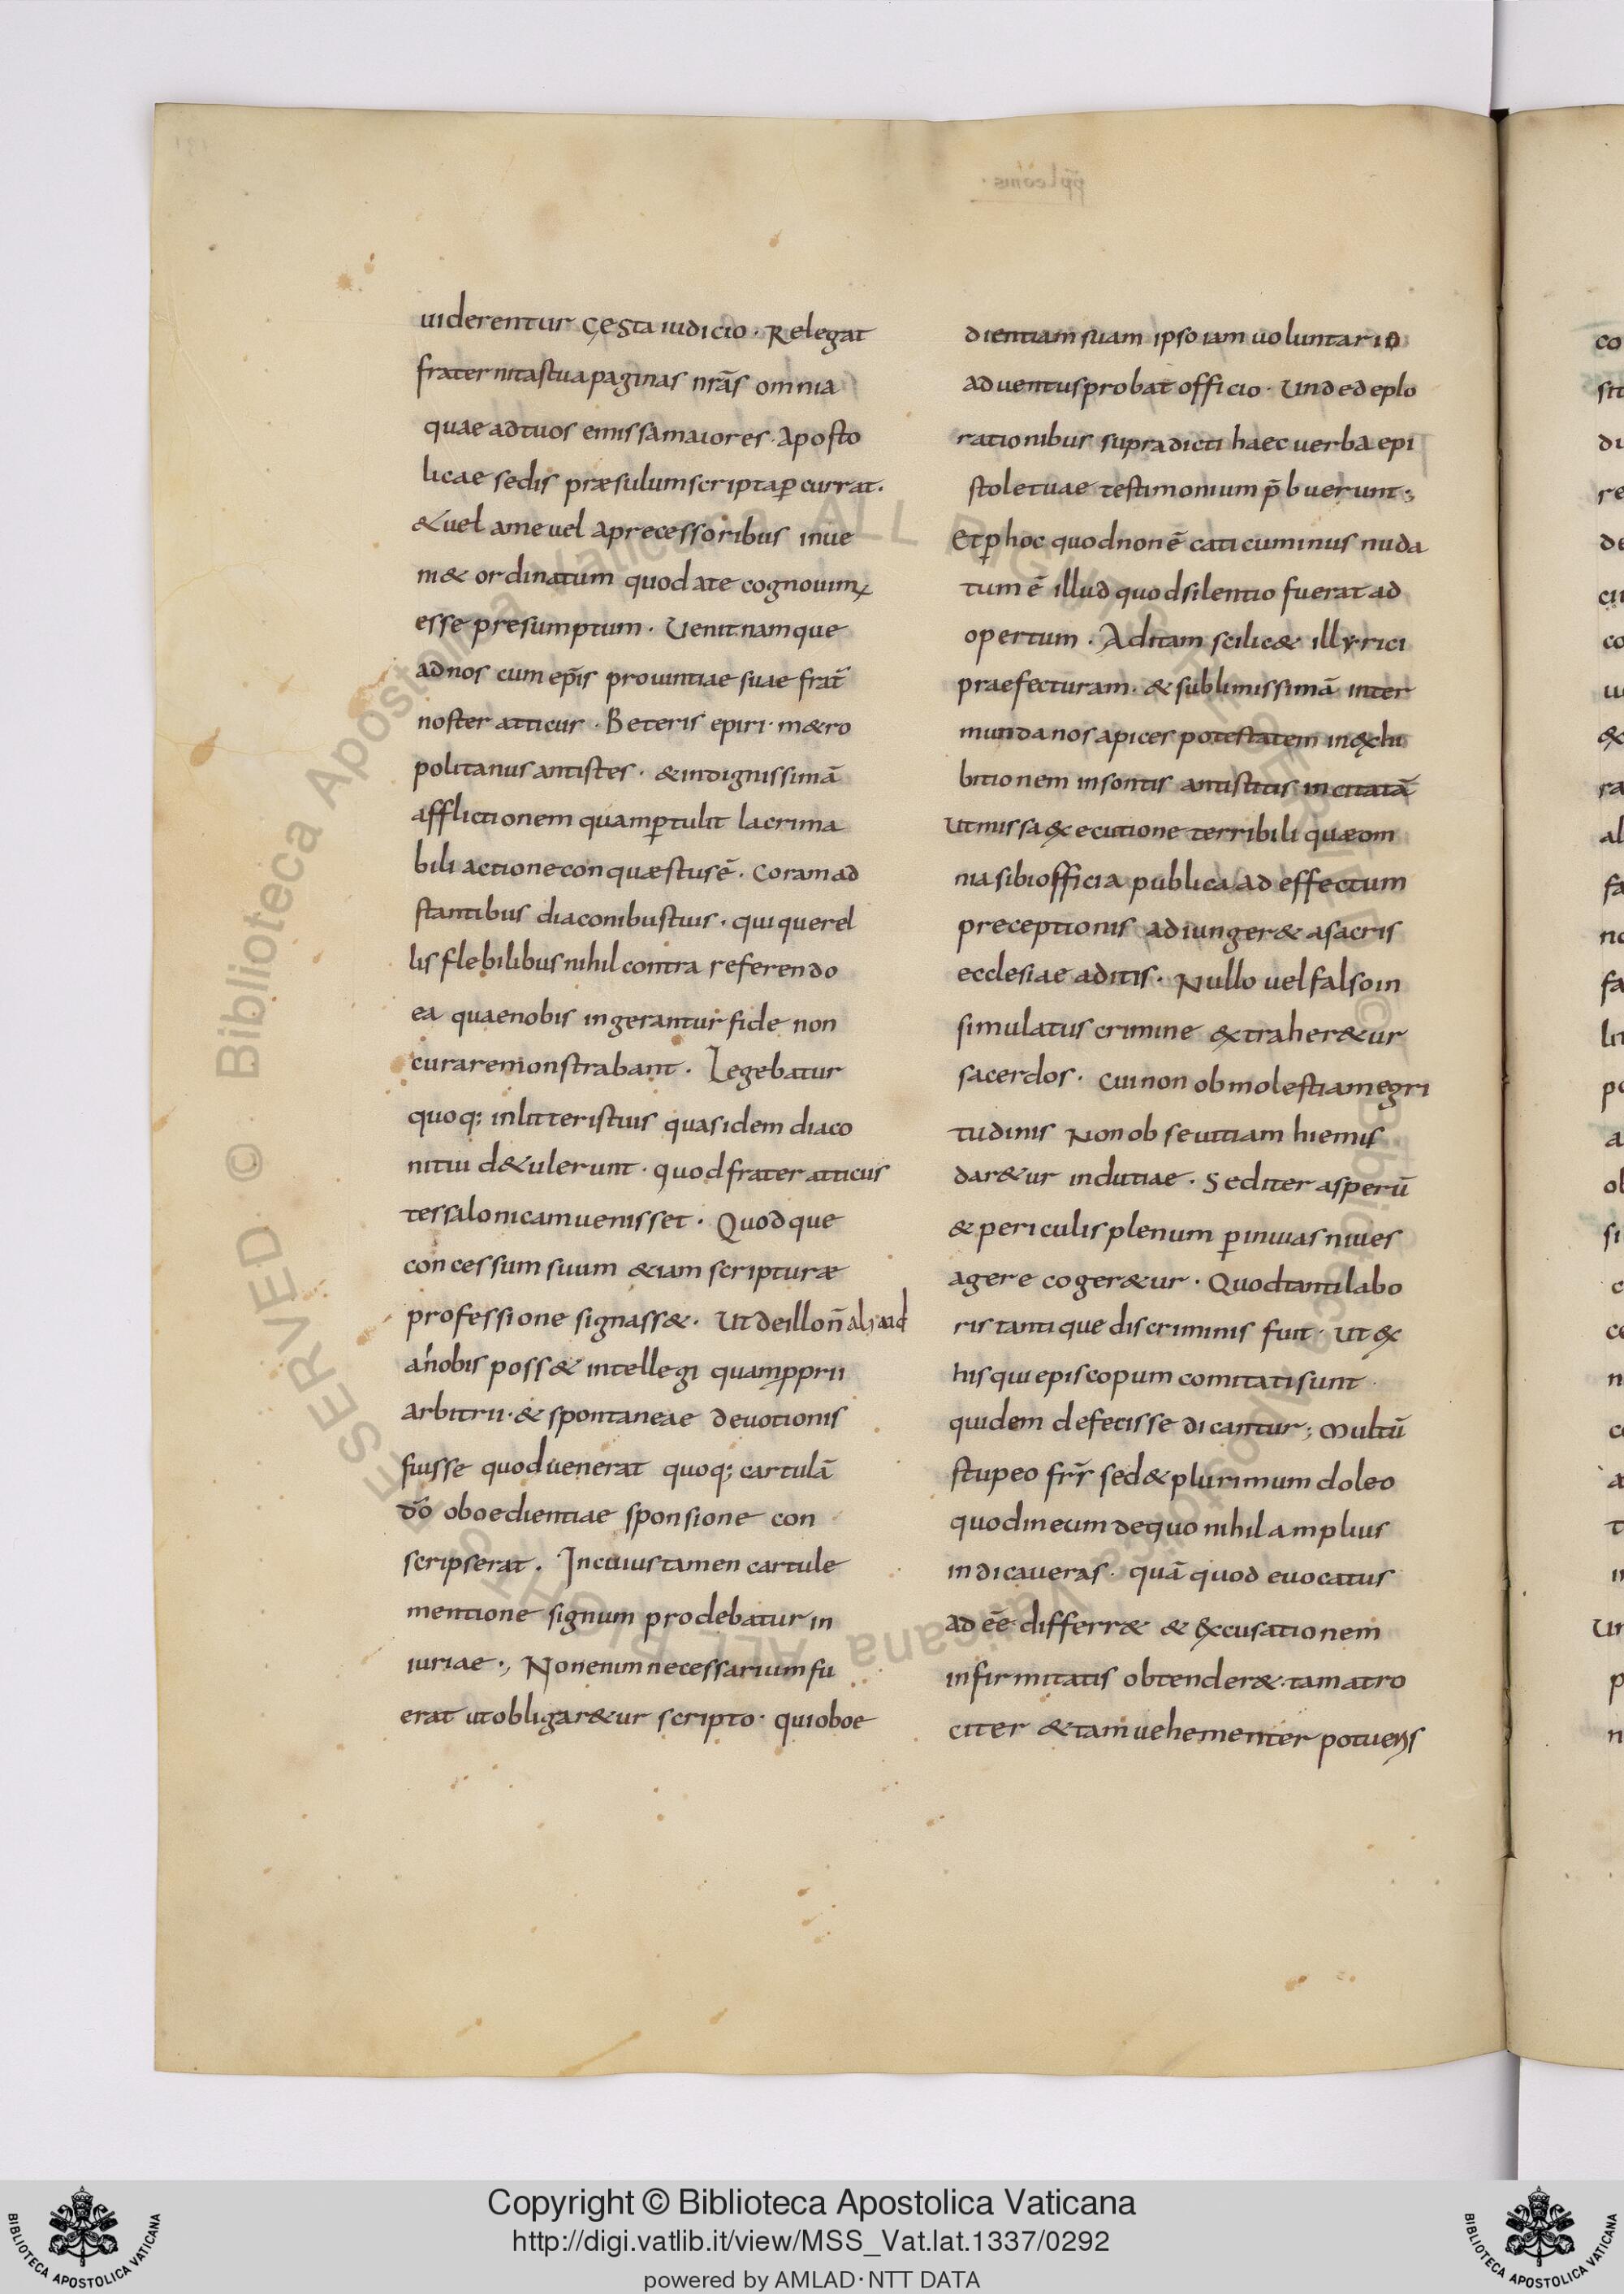 uiderentur gęsta iudicio · Relegat
fraternitastua paginas nr̄as omnia
quae adtuos emissa maiores · Aposto
licae sedis præsulum scripta ꝑcurrat ·
& uel ame uel aprecessoribus inue
ni& ordinatum quod ate cognouim᷒
esse presumptum · Uenit namque
adnos cum ep̄is prouintiae suae frat̄
noster atticus · Beteris epiri · m&ro
politanus antistes · & indignissimā
afflictionem quam ꝑtulit lacrima
bili actione conquæstus ē · Coram ad
stantibus diaconibus tuis · qui querel
lis flebilibus nihil contra referendo
ea quae nobis ingerantur fide non
curare monstrabant · Legebatur
quoq; inlitteris tuis quas idem diaco
ni tui d&ulerunt · quod frater atticus
tessalonicam uenisset · Quod que
concessum suum &iam scripturæ
professione signass& · Ut deillo n̄ aliud
anobis poss& intellegi quam ꝓprii
arbitrii · & spontaneae deuotionis
fuisse quod uenerat quoq; cartulā
dō oboedientiae sponsione con
scripserat · In cuius tamen cartule
mentione signum prodebatur in
iuriae ·, Non enim necessarium fu
erat ut obligar&ur scripto · qui oboe
dientiam suam ipso iam uoluntario
aduentus probat officio · Unde deplo
rationibus supradicti haec uerba epi
stole tuae testimonium p̄buerunt ;
Et ꝑ hoc quod non ē caticuminus nuda
tum ē illud quod silentio fuerat ad
opertum · Aditam scilic& illyrici
praefecturam · & sublimissimā inter
mundanos apices potestatem in exhi
bitionem insontis antistitis incitatā
Ut missa execution​e terribili quæ om
nia sibi officia publica ad effectum
preceptionis adiunger& asacris
ecclesiae aditis · Nullo uel falso in
simulatus crimine extraher&ur
sacerdos · Cui non ob molestiam egri
tudinis Non ob seuitiam hiemis
dar&ur indutiae · Sed iter asperū
& periculis plenum ꝑ inuias niues
agere coger&ur · Quod tanti labo
ris tanti que discriminis fuit · Ut ex
his qui episcopum comitati sunt
quidem defecisse dicantur ; Multū
stupeo fr̄r sed & plurimum doleo
quod ineum dequo nihil amplius
indicaueras · quā quod euocatus
adeē differr& & excusationem
infirmitatis obtender& · tam atro
citer & tam uehementer potueris